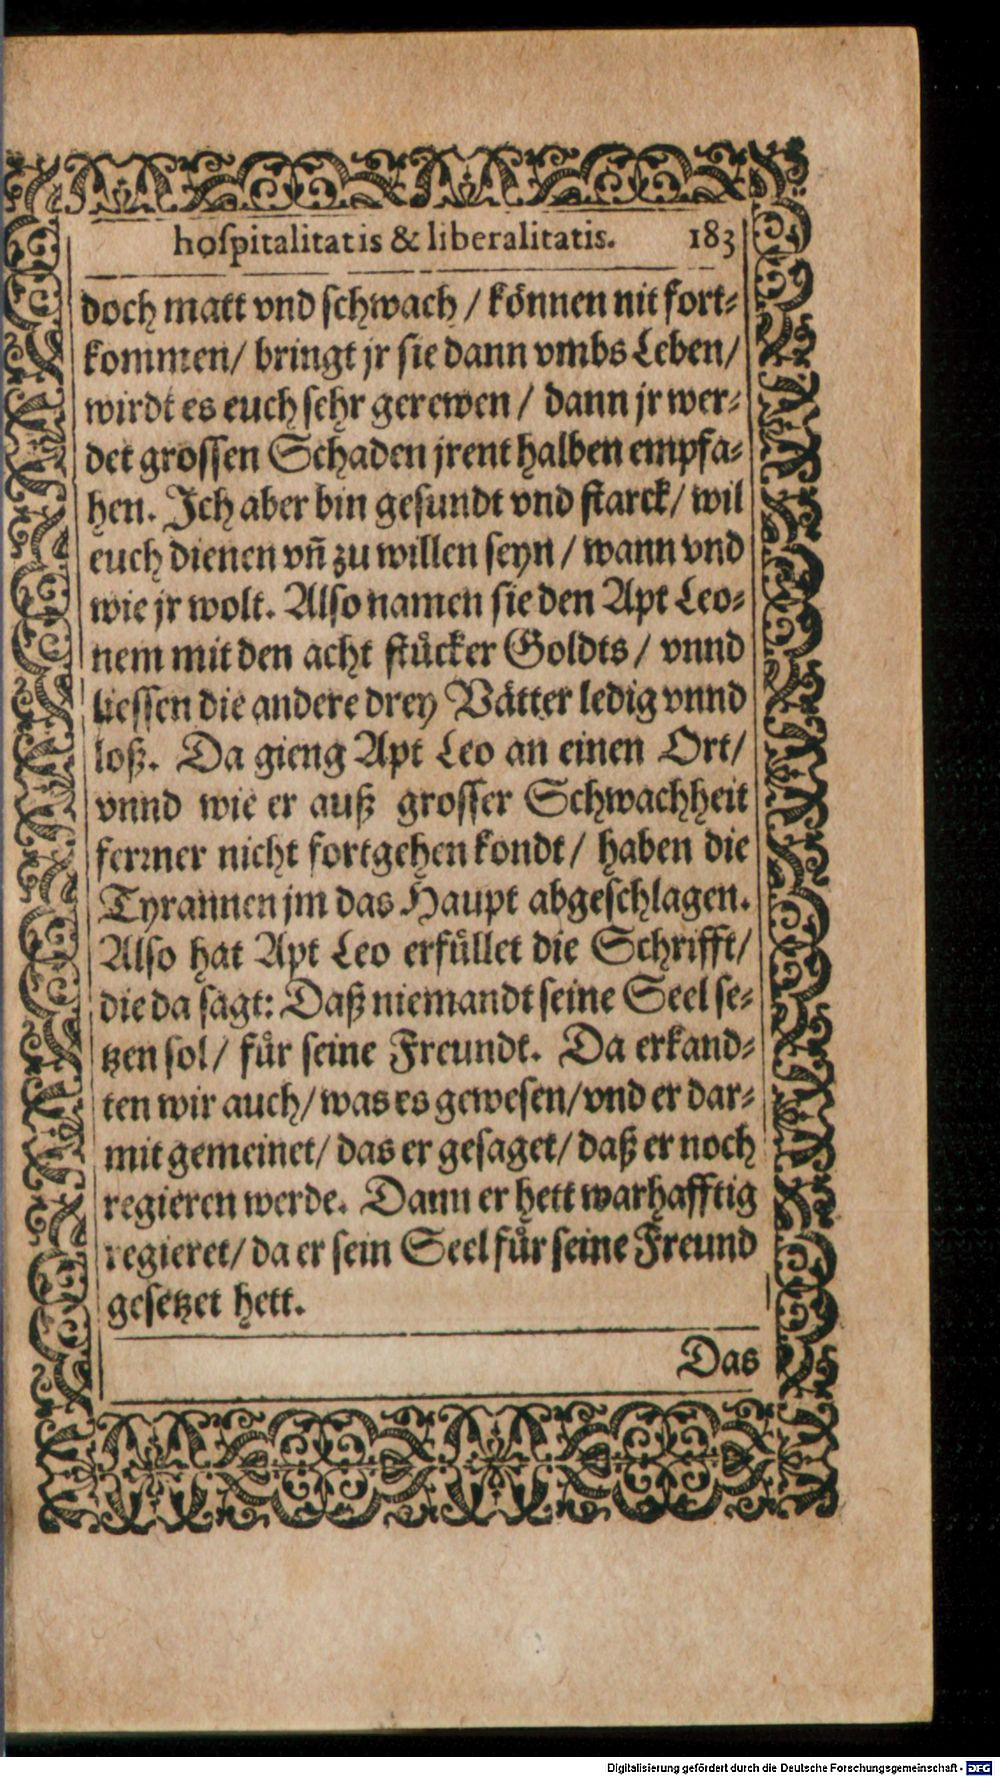 hoſpitalitatis & liberalitatis. 183
doch matt vnd ſchwach / können nit fort-
kommen/ bringt jr ſie dann vmbs Leben/
wirdt es euch ſehr gerewen / dann jr wer-
det groſſen Schaden jrent halben empfa-
hen. Ich aber bin geſundt vnd ſtarck/ wil
euch dienen vñ zu willen ſeyn / wann vnd
wie jr wolt. Alſo namen ſie den Apt Leo-
nem mit den acht ſtuͤcker Goldts / vnnd
lieſſen die andere drey Vaͤtter ledig vnnd
loß. Da gieng Apt Leo an einen Ort/
vnnd wie er auß groſſer Schwachheit
ferrner nicht fortgehen kondt/ haben die
Tyrannen jm das Haupt abgeſchlagen.
Alſo hat Apt Leo erfuͤllet die Schrifft/
die da ſagt: Daß niemandt ſeine Seel ſe-
tzen ſol/ fuͤr ſeine Freundt. Da erkand-
ten wir auch/ was es geweſen/ vnd er dar-
mit gemeinet/ das er geſaget/ daß er noch
regieren werde. Dann er hett warhafftig
regieret/ da er ſein Seel fuͤr ſeine Freund
geſetzet hett.
Das
Digitalisierung gefördert durch die Deutsche Forschungsgemeinschaft - DFG